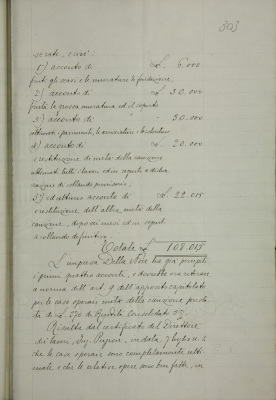 303
strati, e cioè:
1º) acconto di £. 6.000
finiti gli scavi e le murature di fondazione,
2) acconto di £ 30.000
finita la rossa muratura ed il coperto
3) acconto di " 30.000
ultimati i pavimenti, le
4) acconto di £. 20.000
e restituzione di metà della cauzione
ultimati tutti i lavori ed in seguito a dichia
razione di collaudo provvisorio,
5º) ed ultimo acconto di £ 22.015
e restituzione dell'altra metà della
cauzione, dopo sei mesi ed in seguito
a collaudo definitivo.
Totale £ 108.015
L'impresa Della Noce ha già percepito
i primi quattro acconti, e dovrebbe ora ritirare
a norma dell'art. 9 dell'apposito capitolato
per le case operaie metà della cauzione presta
ta di £. 270 di Rendita Consolidato
Risulta dal certificato del Direttore
dei lavori, Ing. in data 7 luglio
che le case operaie sono completamente ulti
mate e che le relative opere sono ben fatte, in